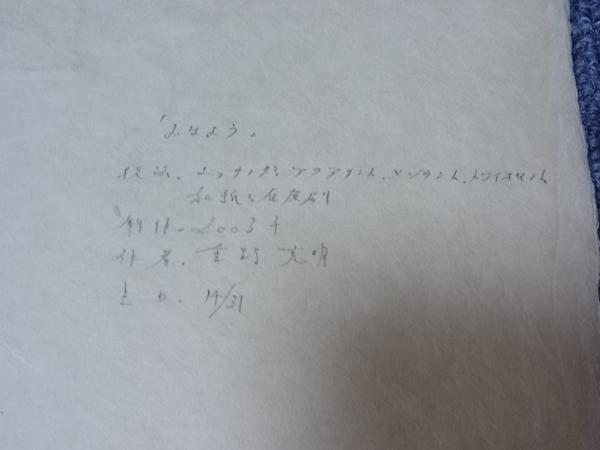 「おはよう」
技法、エッチング、アクアチント、メゾチント、ドライポイント
和紙に雁皮刷
制作、2003年
作者、重野 克明
14/31